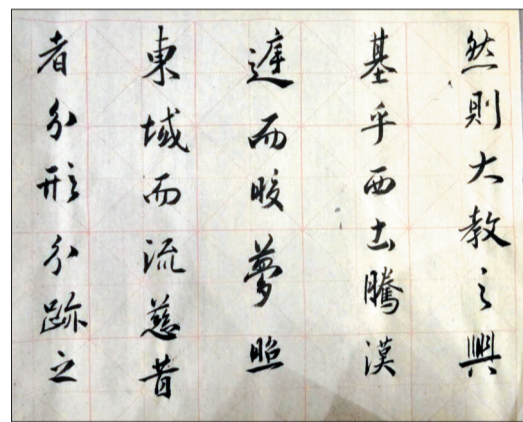 然則大教之興
基乎西土騰漢
遳而皎夢照
東域而流慈昔
者分形分跡之